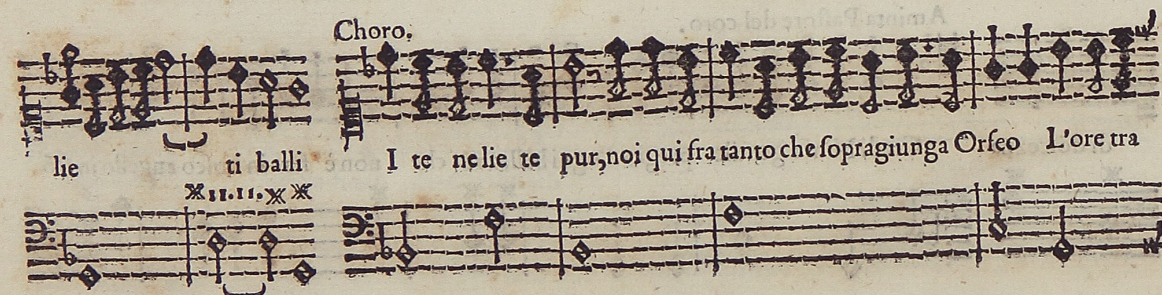 Choro.
lie ti balli I te ne lie te pur,noi qui fra tanto che ſopragiunga Orfeo L'ore tra
11.11.